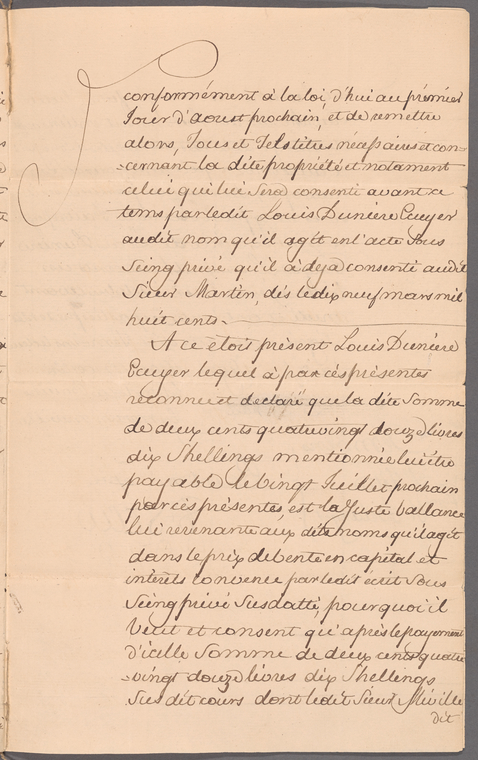 conformément à la loi, d'hui au prémier
Jour d'aoust prochain, et de remettre
alors, Tous et Tels titres nécessaires et con-
-cernant la dite propriété et notament
celui qui lui Sera consenti avant ce
tems par ledit Louis Dunière Ecuyer
audit nom qu'il agit en l'acte Sous
Seing privé qu'il à déja consenti audit
Sieur Martin, dès le dix neuf mars mil
huit cents.
A ce étoit présent Louis Dunière
Ecuyer lequel à par cès présentes
reconnu et declaré que la dite Somme
de deux cents quatrevingt douze livres
dix Shellings mentionnée lui être
payable le vingt Juillet prochain
par cès présentes, est la Juste ballance
lui revenante aux dits noms qu'il agit
dans le prix de vente en capital et
interêts convenu par ledit écrit Sous
Seing privé Susdatté, pourquoi il
Veut et consent qu'après le payement
d'icelle Somme de deux cents quatre
-vingt douze livres dix Shellings
Sus dit cours dont ledit Sieur Miville
dit